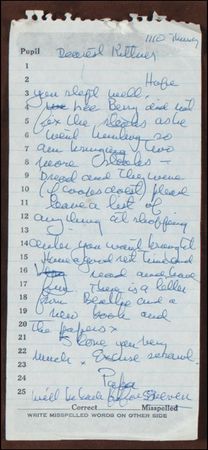 1110 Thursday
Pupil Dearest Kittner
1
2 Hope
3 you slept well.
4 Lee Berry did not
5 fix the clocks as he
6 went hunting so
7 am bringing two
8 more clocks –
9 bread and
10 (if Cooper doesn't) please
11 leave a list of
12 anything at shopping
13
14 center you want brought
15 Home a good rest
16 read and have
17 fun. There is a letter
18 from and a
19 new book and
20 the papers x
21 I love you very
22 much. Excuse scrawl.
23 Papa
24
25 We'll be back before seven
Correct Misspelled
WRITE MISSPELLED WORDS ON OTHER SIDE